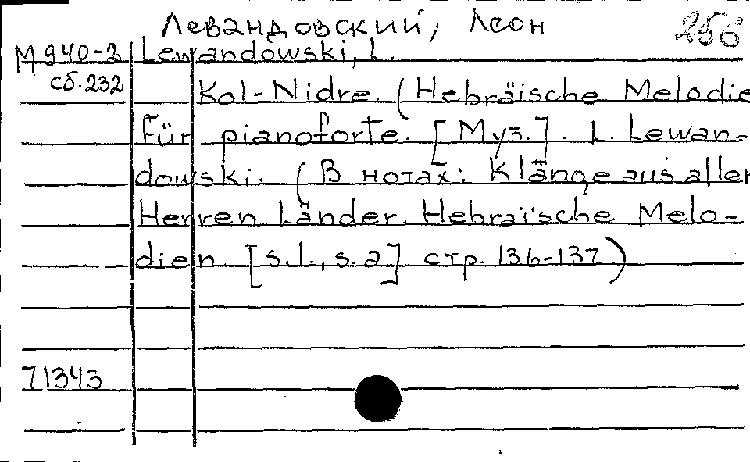 Левандовский, Леон 256
М 940-2 Lewandowski, L.
сб. 232
Kol-Nidre. (Hebräische Melodie
für pianoforte. [Муз.]. L. Lewan-
dowski. (В нотах: Klänge aus aller
Herren Länder. Hebraïsche Melo-
dien. [s.l., s.a] стр. 136-137)
71343